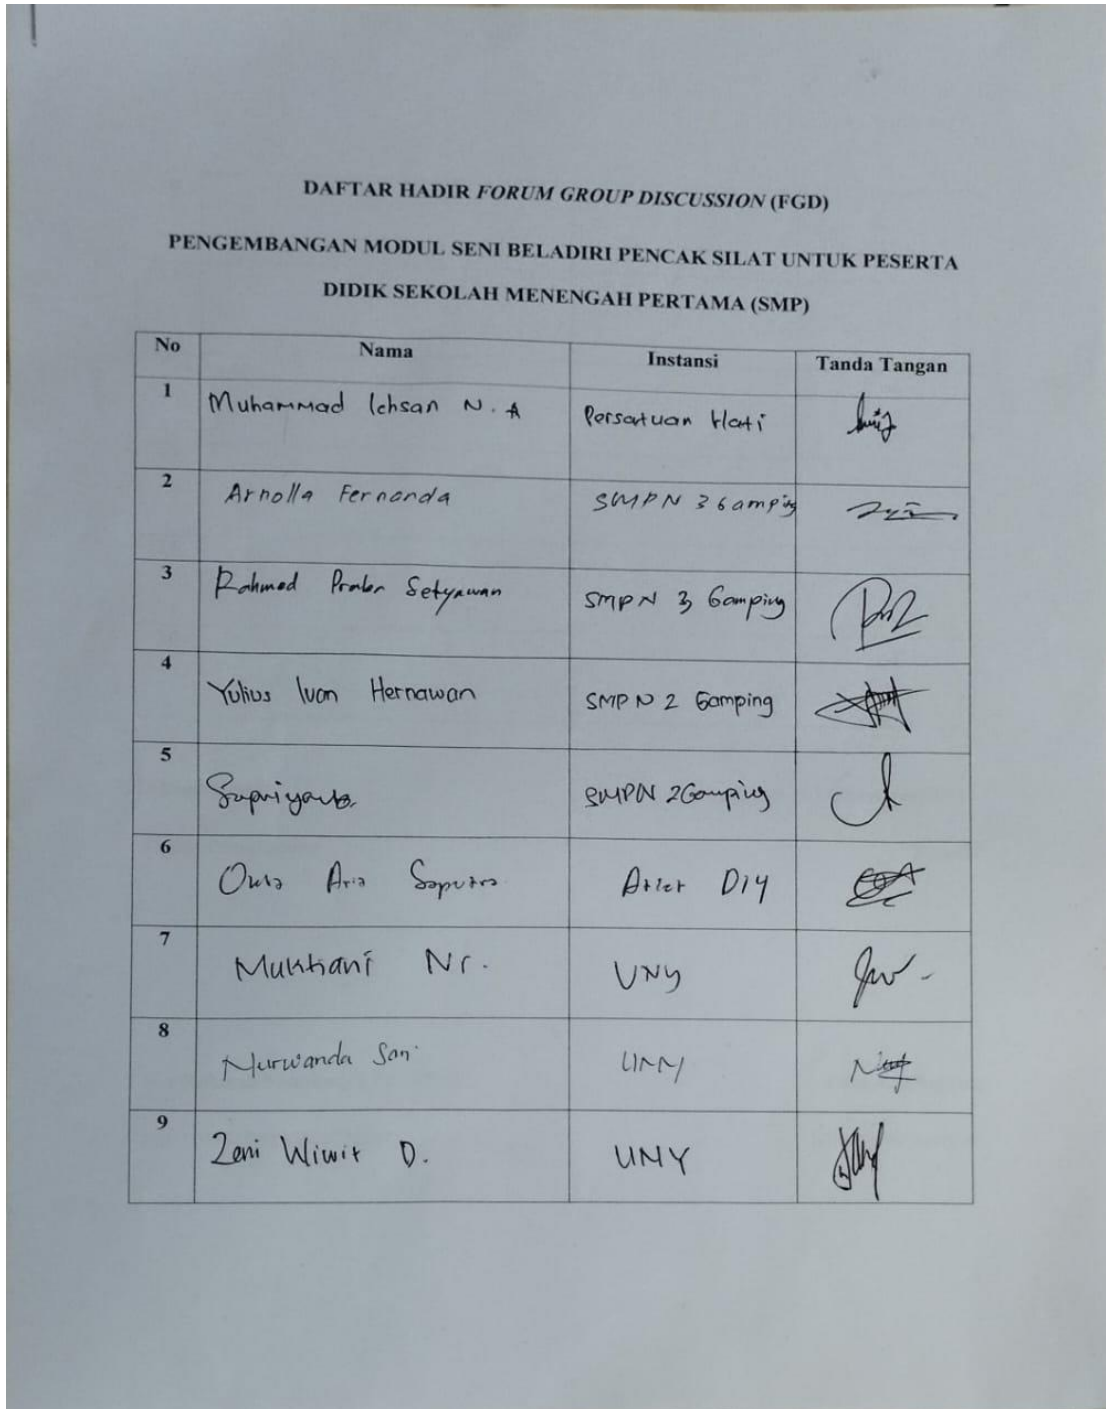 DAFTAR HADIR FORUM GROUP DISCUSSION (FGD)
PENGEMBANGAN MODUL SENI BELADIRI PENCAK SILAT UNTUK PESERTA
DIDIK SEKOLAH MENENGAH PERTAMA (SMP)
No Nama Instansi Tanda Tangan
1 Muhammad Ichsan N. A Persatuan Hati
2 Arnolla Fernanda SMPN 3 Gamping
3 Rahmad Setyawan SMPN 3 Gamping
4 Yulius Ivan Hernawan SMPN 2 Gamping
5 Supriyanto SMPN 2 Gamping
6 Aria Saputra DIY
7 Muktiani Nr. UNY
8 Nurwanda Sari UNY
9 Zeni Wiwit D. UNY